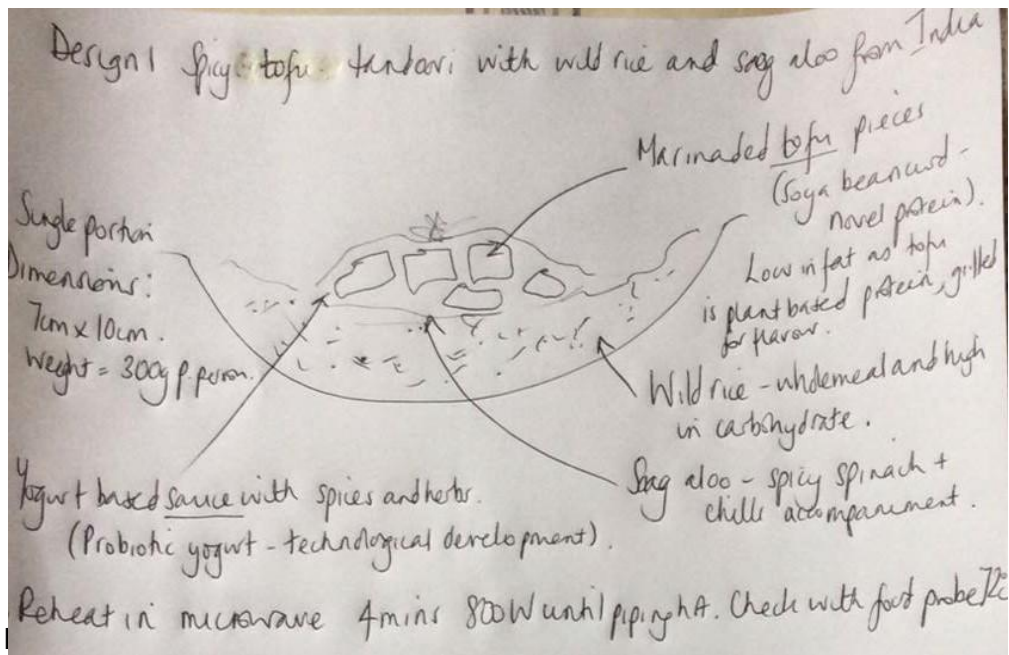 Design 1 Spicy tofu tandoori with wild rice and saag aloo from India
Marinaded tofu pieces
(Soya beancurd -
novel protein).
Low in fat as tofu
is plant based protein, grilled
for flavour.
Single portion
Dimensions:
7cm x 10cm.
Weight = 300g p. person.
Wild rice - wholemeal and high
in carbohydrate.
Saag aloo - spicy spinach +
chilli accompaniment.
Yogurt based sauce with spices and herbs.
(Probiotic yogurt - technological development).
Reheat in microwave 4mins 800W until piping hot. Check with food probe 72c